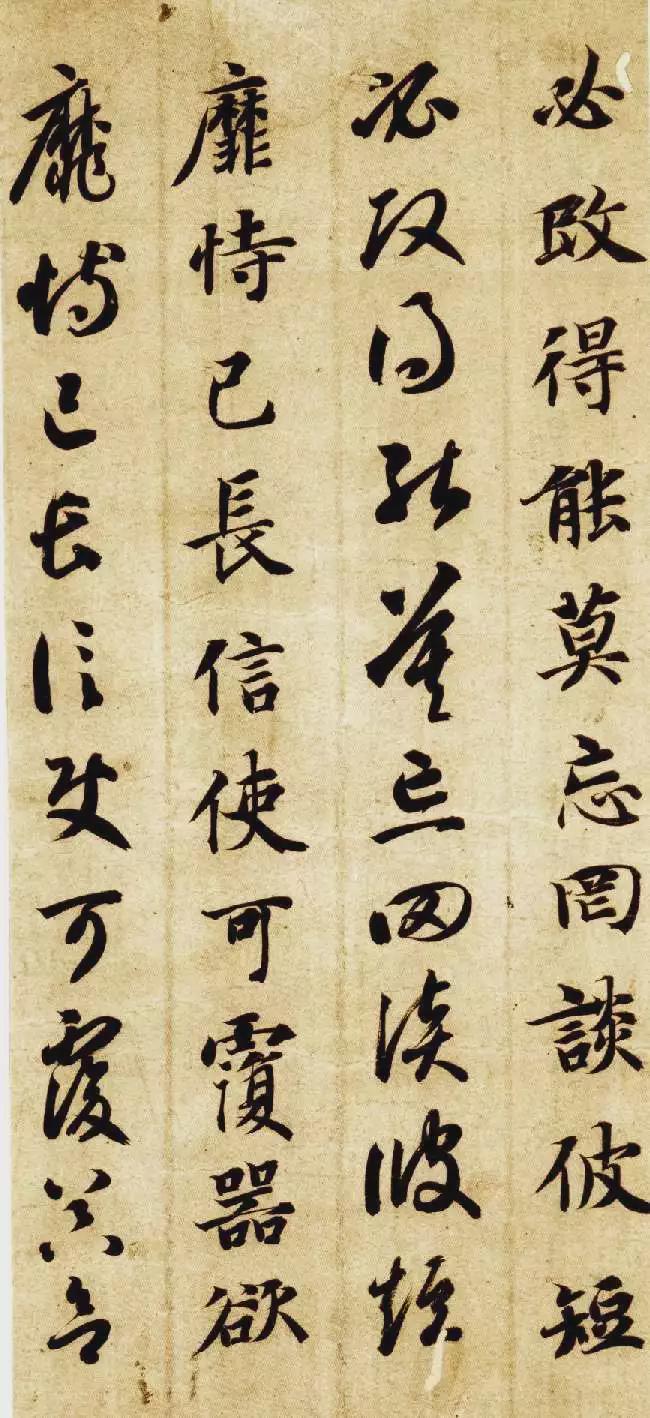 必改得能莫忘罔談彼短
必改得能莫忘罔談彼短
靡恃已長信使可覆器欲
靡恃已長信使可覆器欲